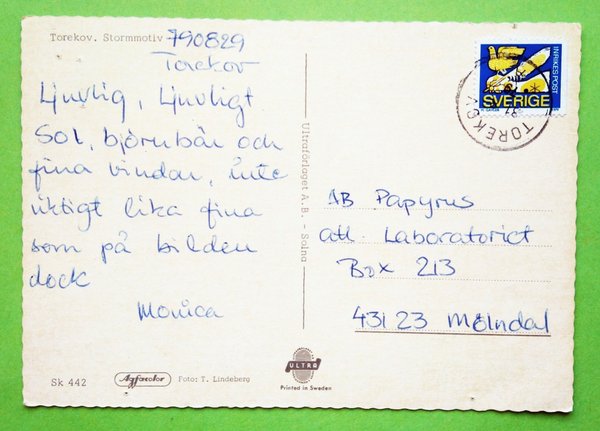 Torekov. Stormmotiv 790829
Torekov
Ljuvlig, Ljuvligt
Sol, björnbär och
fina vindar, inte
riktigt lika fina
som på bilden
dock
Monica
Sk 442
Agfacolor
Foto: T. Lindeberg
Ultraförlaget A.B. - Solna
ULTRA
Printed in Sweden
INRIKES POST
SVERIGE
TOREKOV
AB Papyrus
att. Laboratoriet
Box 213
431 23 Mölndal